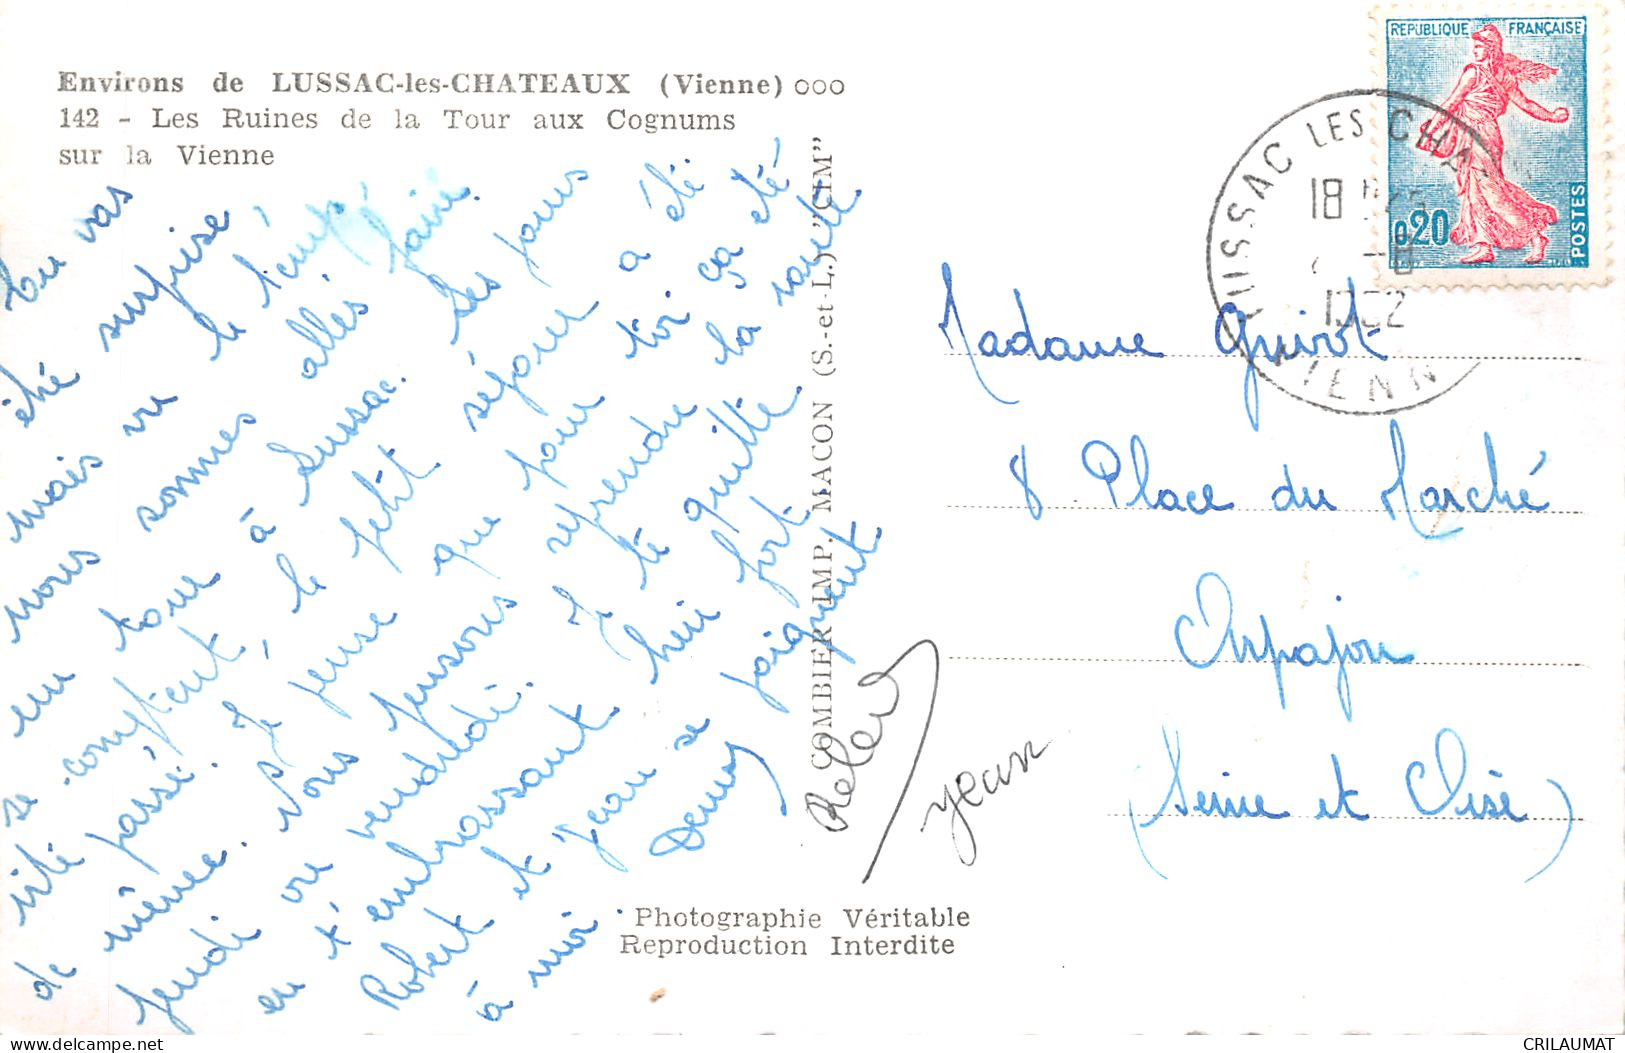 Environs de LUSSAC-les-CHATEAUX (Vienne) ooo
142 - Les Ruines de la Tour aux Cognums
sur la Vienne
Tu vas
été surprise,
mais vu le temps
nous sommes allés faire
un tour à Lussac. Les jours
se comptent, le petit séjour a été
vite passé. Je pense que pour toi ça été
de même. Nous pensons reprendre la route
jeudi ou vendredi. Je te quitte
en t'embrassant bien fort
Robert et Jean se joignent
à moi Denise
Jean
COMBIER IMP. MACON (S.-et-L.) "CIM"
Photographie Véritable
Reproduction Interdite
REPUBLIQUE FRANÇAISE
0,20
POSTES
LUSSAC LES CHA
18
VIENN
Madame Guirot
8 Place du Marché
Arpajon
(Seine et Oise)
CRILAUMAT